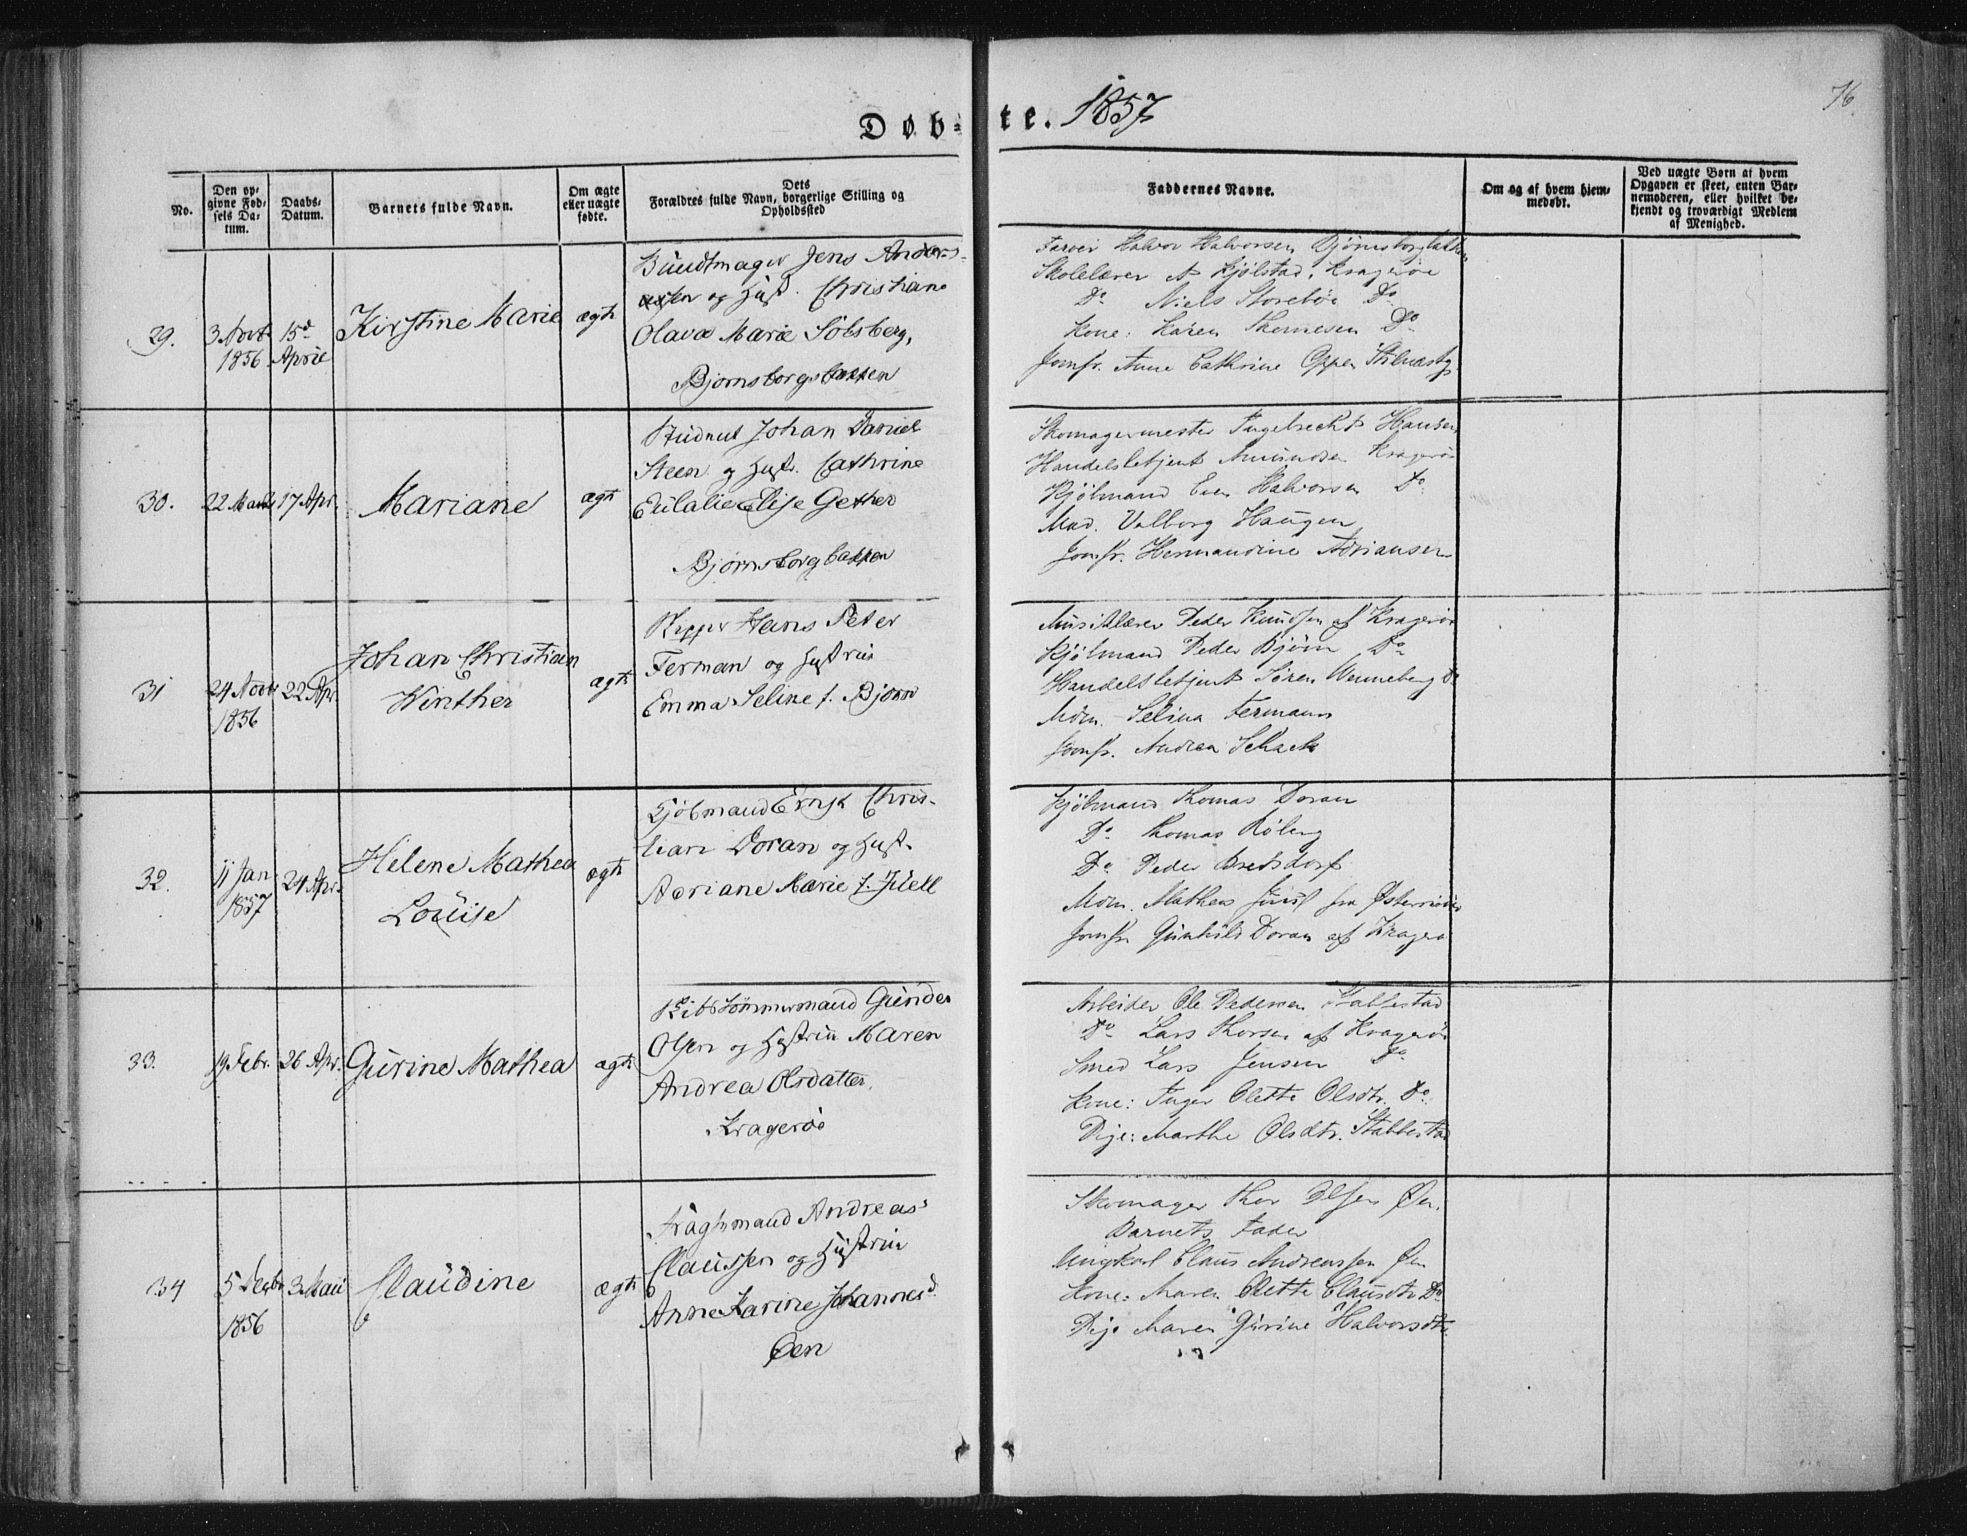 76.
Døb-te. 1857
No.
Den op-
givne Fød-
sels Da-
tum.
Daabs-
Datum.
Barnets fulde Navn.
Om ægte
eller uægte
fødte.
Dets
Forældres fulde Navn, borgerlige Stilling og
Opholdssted
Faddernes Navne.
Om og af hvem hjem-
medøbt.
Ved uægte Børn af hvem
Opgaven er skeet, enten Bar-
nemoderen, eller hvilket be-
kjendt og troværdigt Medlem
af Menighed.
29.
3 Novb.
1856
15d
April
Kirstine Marie
ægte
Bundtmager Jens Anders-
sen og Hust. Christiane
Olava Marie Solsberg,
Bjørnsborgsbakken
Farver Halvor Halvorsen Bjørnsborgbakken
Skolelærer A Kjølstad, Kragerøe
Do Niels Storebøe Do
Kone: Karen Do
Jomfr. Anne Cathrine
30.
22 Marts
17 Apr.
Mariane
ægte
Johan Daniel
Steen og Hustr. Cathrine
Eulalie Elise Gether
Bjørnsborgbakken
Skomagermester Ingebrecht Hansen
Handelsbetjent Amundsen Kragerø
Kjøbmand Even Halvorsen Do
Mad. Valborg Haugen
Jomfr. Hermandine Adriansen
31
24 Novb
1856
22 Apr.
Johan Christian
Winther
ægte
Hans Peter
Ferman og Hustrue
Emma Seline f. Bjørn
Musiklærer Peder Knudsen af Kragerø
Kjøbmand Peder Bjørn Do
Handelsbetjent Søren Wenneberg Do
Mdm. Selina Fermann
Jomfr. Andrea Schack
32.
11 Jan
1857
24 Apr.
Helene Mathea
Louise
ægte
Kjøbmand Ernst Chris-
tian Doran og Hust.
Adriane Marie f. Juell
Kjøbmand Thomas Doran
Do Thomas
Do Peder Bredsdorf
Mdm. Mathea Juul fra Østerriisøer
Jomfr. Gunhild Doran af Kragerø
33.
19 Febr.
26 Apr.
Gurine Mathea
ægte
Skibstømmermand Gunder
Olsen og Hustrue Maren
Andrea Olsdatter.
Kragerøe
Arbeider Ole Pedersen Stabbestad
Do Lars Thorsen af Kragerø
Smed Lars Jensen Do
Kone: Inger Olette Olsdtr. Do
Pige: Marthe Olsdtr. Stabbestad
34
5 Decbr
1856
3 Mai
Claudine
ægte
Fragtmand Andreas
Claussen og Hustrue
Anne Karine Johannesd
Øen
Skomager Thor Olsen Øen.
Barnets Fader
Ungkarl Claus Andreassen Øen
Kone: Maren Olette Clausdtr. Do
Pige Maren Gurine Halvorsdtr.